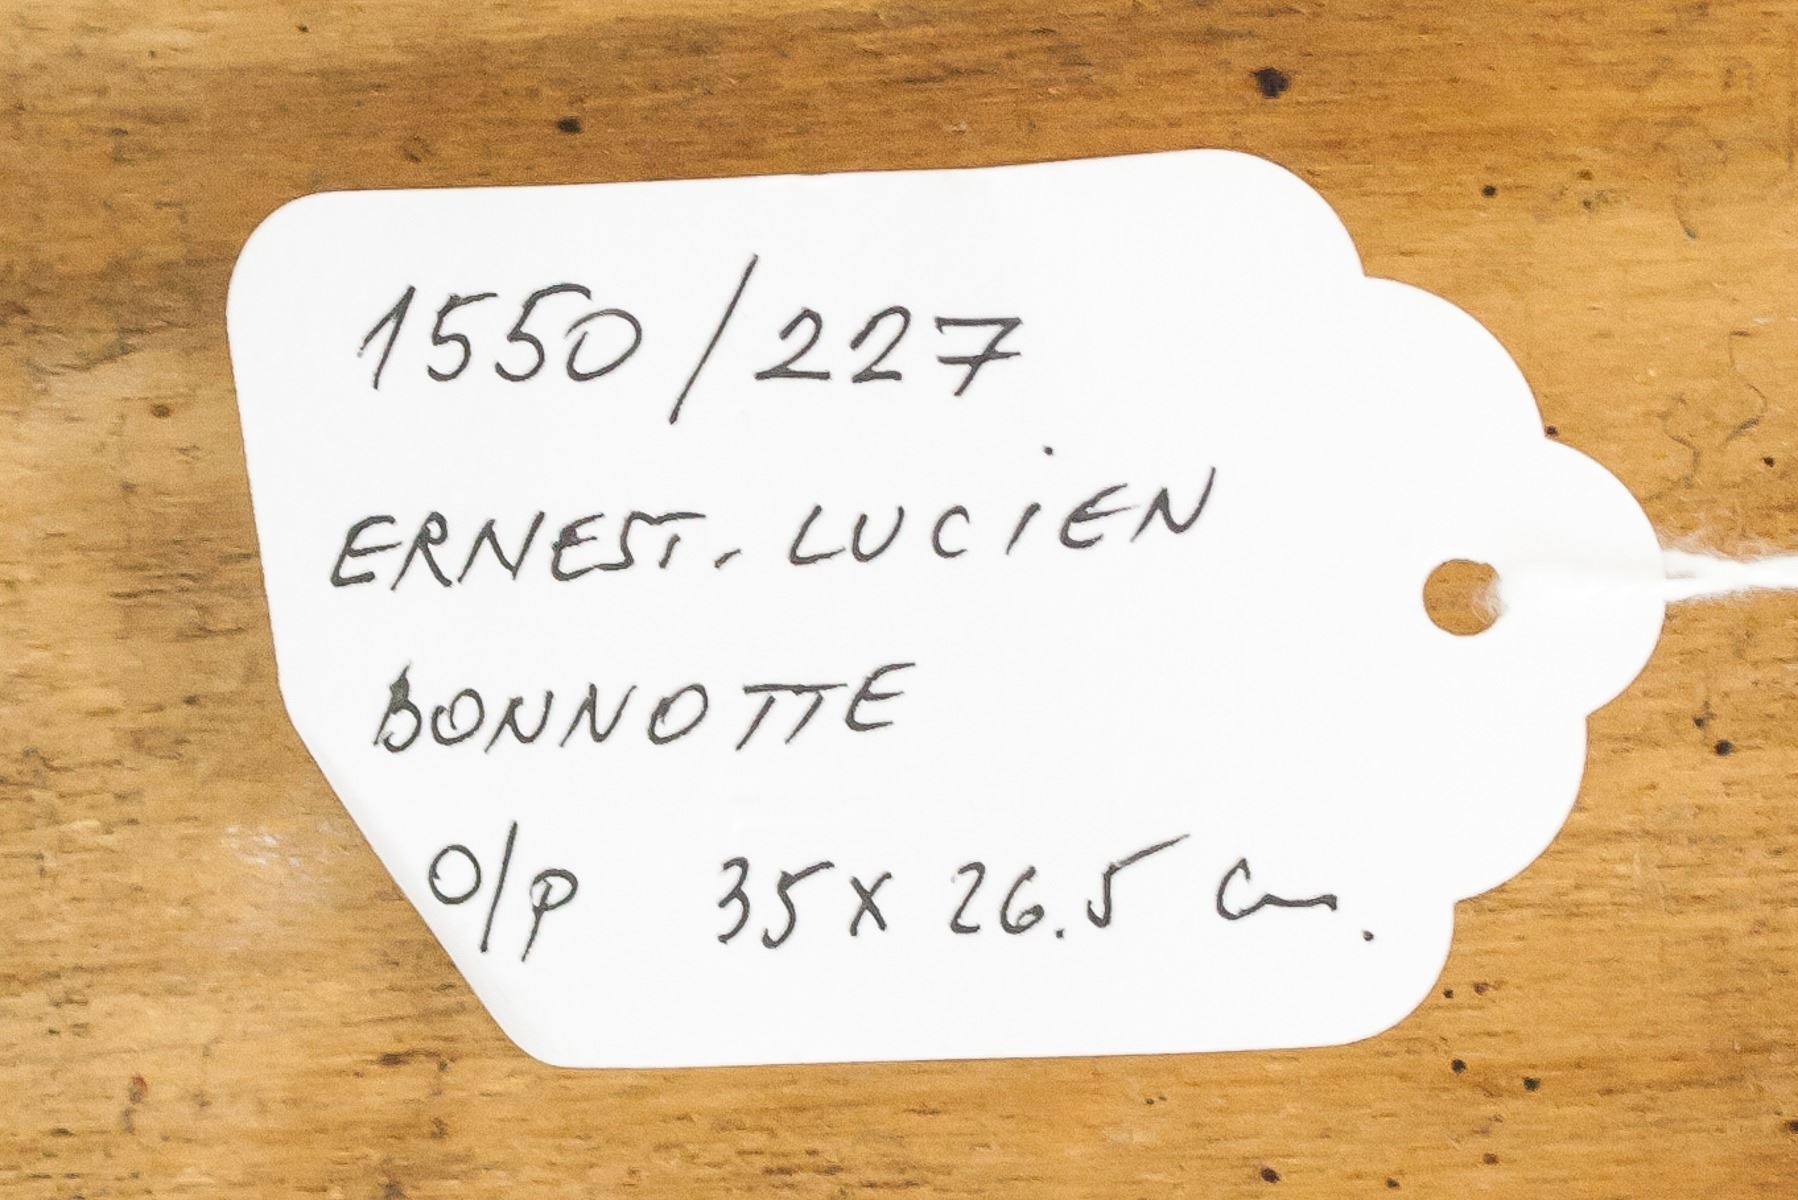 1550/227
ERNEST. LUCIEN
BONNOTTE
O/P 35 x 26.5 cm.